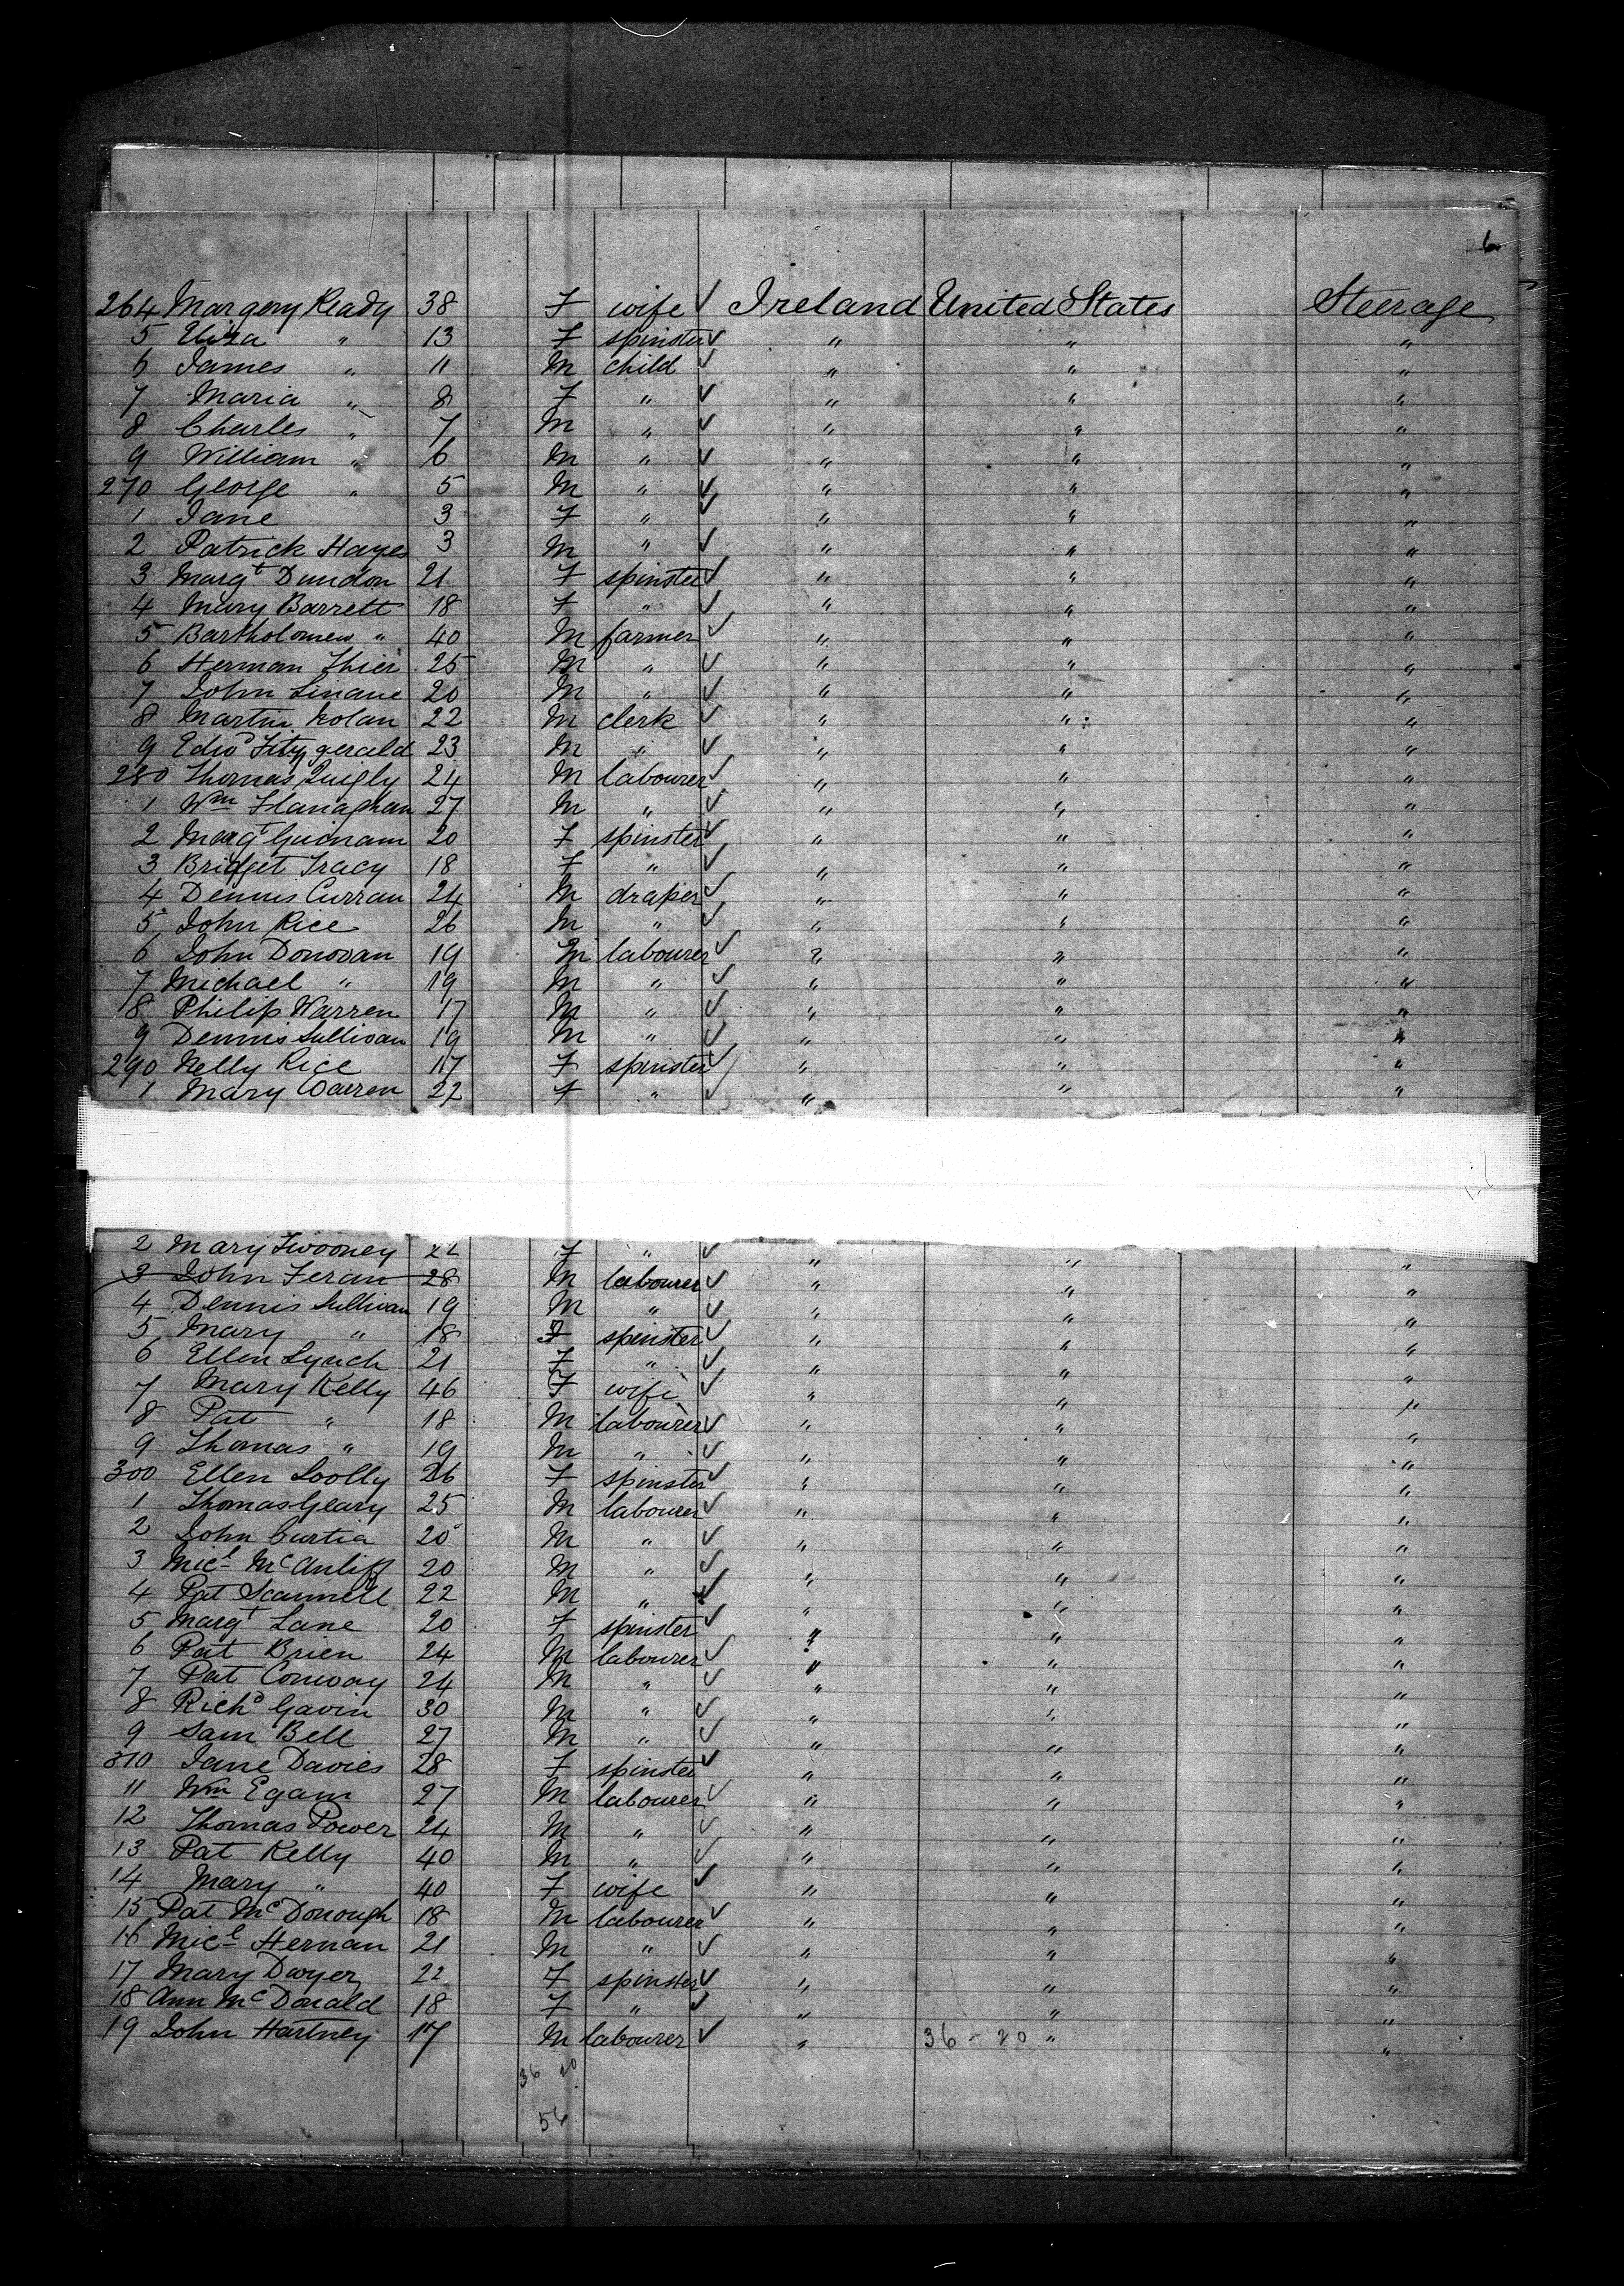 6
264 Margery Ready 38 F wife ✓ Ireland United States Steerage
5 Eliza " 13 F spinster ✓ " " "
6 James " 11 M child ✓ " " "
7 Maria " 8 F " ✓ " " "
8 Charles " 7 M " ✓ " " "
9 William " 6 M " ✓ " " "
270 George " 5 M " ✓ " " "
1 Jane 3 F " ✓ " " "
2 Patrick Hayes 3 M " ✓ " " "
3 Margt Dundon 21 F spinster ✓ " " "
4 Mary Barrett 18 F " ✓ " " "
5 Bartholomew " 40 M farmer ✓ " " "
6 Herman Thier 25 M " ✓ " " "
7 John Linane 20 M " ✓ " " "
8 Martin Nolan 22 M clerk ✓ " " "
9 Edwd Fitzgerald 23 M " ✓ " " "
280 Thomas Quigly 24 M labourer ✓ " " "
1 Wm Flanaghan 27 M " ✓ " " "
2 Margt Guinam 20 F spinster ✓ " " "
3 Bridget Tracy 18 F " ✓ " " "
4 Dennis Curran 24 M draper ✓ " " "
5 John Rice 26 M " ✓ " " "
6 John Donovan 19 M labourer ✓ " " "
7 Michael " 19 M " ✓ " " "
8 Philip Warren 17 M " ✓ " " "
9 Dennis Sullivan 19 M " ✓ " " "
290 Nelly Rice 17 F spinster ✓ " " "
1 Mary Warren 22 F " ✓ " " "
2 Mary Twooney F " ✓ " " "
3 John Feran 28 M labourer ✓ " " "
4 Dennis Sullivan 19 M " ✓ " " "
5 Mary " 18 F spinster ✓ " " "
6 Ellen Lynch 21 F " ✓ " " "
7 Mary Kelly 46 F wife ✓ " " "
8 Pat " 18 M labourer ✓ " " "
9 Thomas " 19 M " ✓ " " "
300 Ellen Soolly 26 F spinster ✓ " " "
1 Thomas Geary 25 M labourer ✓ " " "
2 John Curtia 20 M " ✓ " " "
3 Micl McAuliff 20 M " ✓ " " "
4 Pat Scannell 22 M " ✓ " " "
5 Margt Lane 20 F spinster ✓ " " "
6 Pat Brien 24 M labourer ✓ " " "
7 Pat Conway 24 M " ✓ " " "
8 Richd Gavin 30 M " ✓ " " "
9 Sam Bell 27 M " ✓ " " "
310 Jane Davies 28 F spinster ✓ " " "
11 Wm Egam 27 M labourer ✓ " " "
12 Thomas Power 24 M " ✓ " " "
13 Pat Kelly 40 M " ✓ " " "
14 Mary " 40 F wife ✓ " " "
15 Pat McDonough 18 M labourer ✓ " " "
16 Micl Hernan 21 M " ✓ " " "
17 Mary Dwyer 22 F spinster ✓ " " "
18 Ann McDonald 18 F " ✓ " " "
19 John Hartney 17 M labourer ✓ " 36 - 20 " "
36 20
56